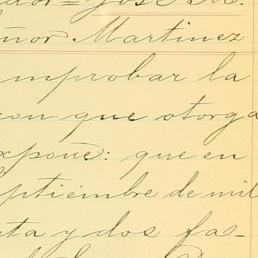 ador = José M.
eñor Martinez
mprobar la
con que otorga
xpone: que en
eptiembre de mil
eta y dos fas-